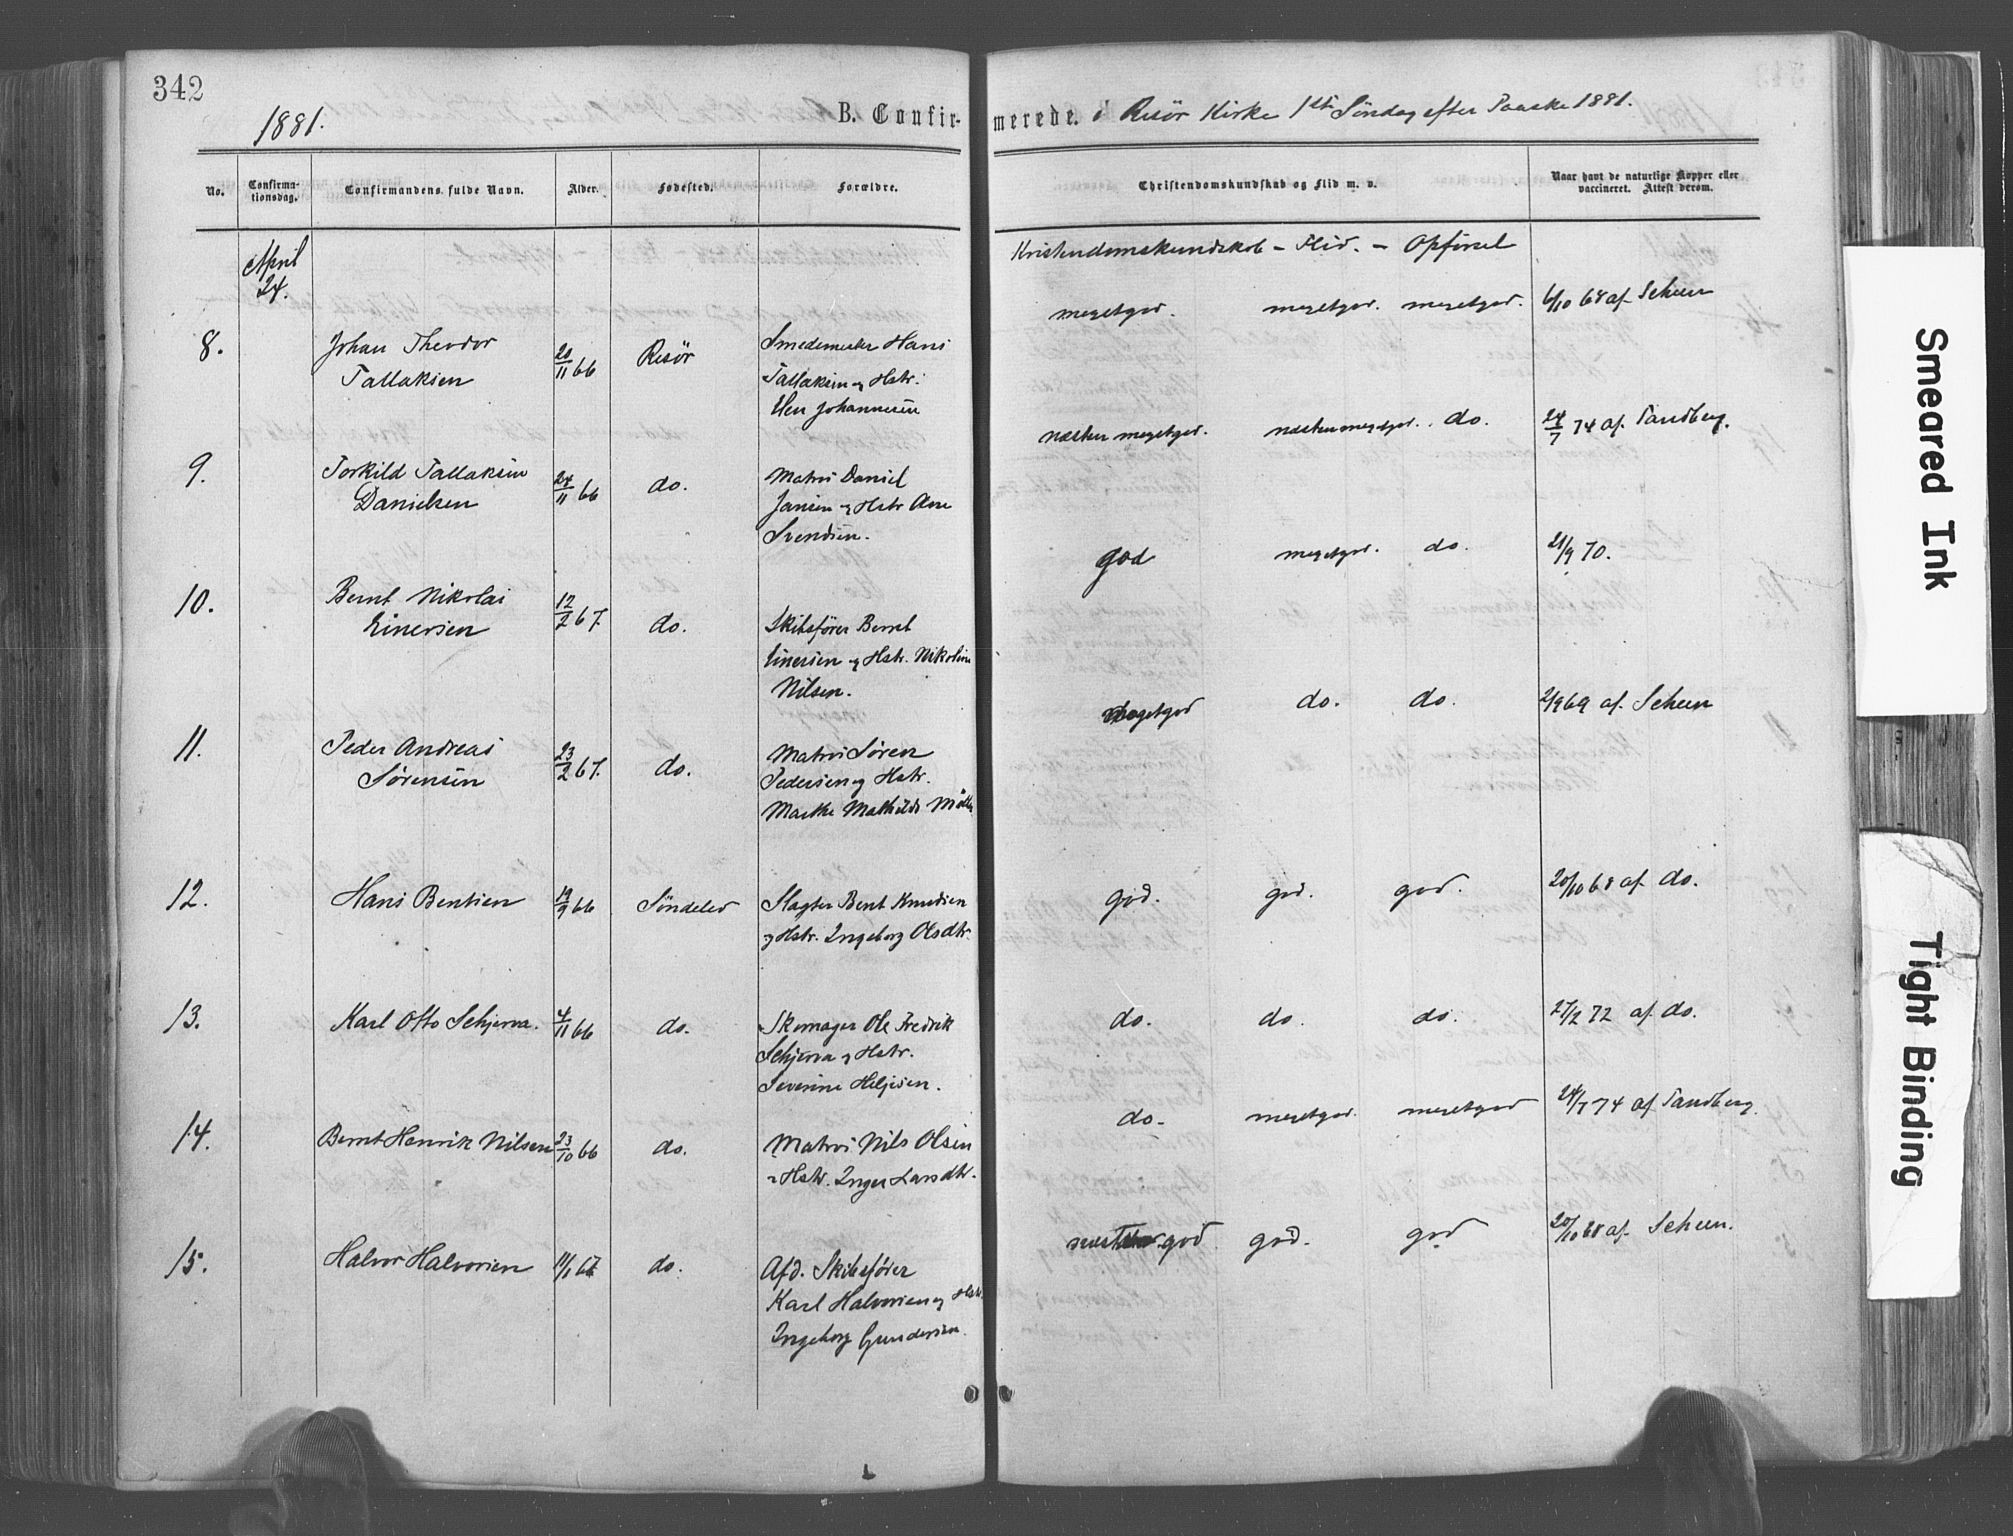 342
1881.
B. Confirmerede. i Risör Kirke 1ste Søndag efter Paaske 1881.
No.
Confirmationsdag.
Confirmandens fulde Navn.
Alder.
Fødested.
Forældre.
Christendomskundskab og Flid m. v.
Naar havt de naturlige Kopper eller
vaccineret. Attest derom.
April
24.
Kristendomskundskab – Flid. – Opförsel
8.
Johan Theodor
Tallaksen
20/11 66
Risör
Smedemester Hans
Tallaksen og Hstr.
Elen Johannesen
megetgod. megetgod. megetgod. 6/10 68 af Scheen
9.
Torkild Tallaksen
Danielsen
24/11 66
do.
Matros Daniel
Jansen og Hstr Ane
Svendsen.
næsten megetgod. næsten megetgod. do. 24/7 74 af Sandberg.
10.
Bernt Nikolai
Einersen
12/2 67.
do.
Skibsfører Bernt
Einersen og Hstr. Nikoline
Nilsen.
god megetgod. do. 21/9 70.
11.
Peder Andreas
Sørensen
23/2 67.
do.
Matros Søren
Pedersen og Hstr.
Marthe Mathilde
megetgod do. do. 2/9 69 af Scheen
12.
Hans Bentsen
19/9 66
Søndeled
Slagter Bent Knudsen
og Hstr. Ingeborg Olsdtr.
god. god. god. 20/10 68 af do.
13.
Karl Otto Schjerva.
4/11 66
do.
Skomager Ole Fredrik
Schjerva og Hstr.
Severine Heljesen.
do. do. do. 27/2 72 af do.
14.
Bernt Henrik Nilsen
23/10 66
do.
Matros Nils Olsen
og Hstr. Inger Larsdtr.
do. megetgod. megetgod 24/7 74 af Sandberg.
15.
Halvor Halvorsen
11/1 67
do.
Afd. Skibsfører
Karl Halvorsen og Hstr.
Ingeborg Gundersen.
god god. god 20/10 68 af Scheen.
Smeared Ink
Tight Binding